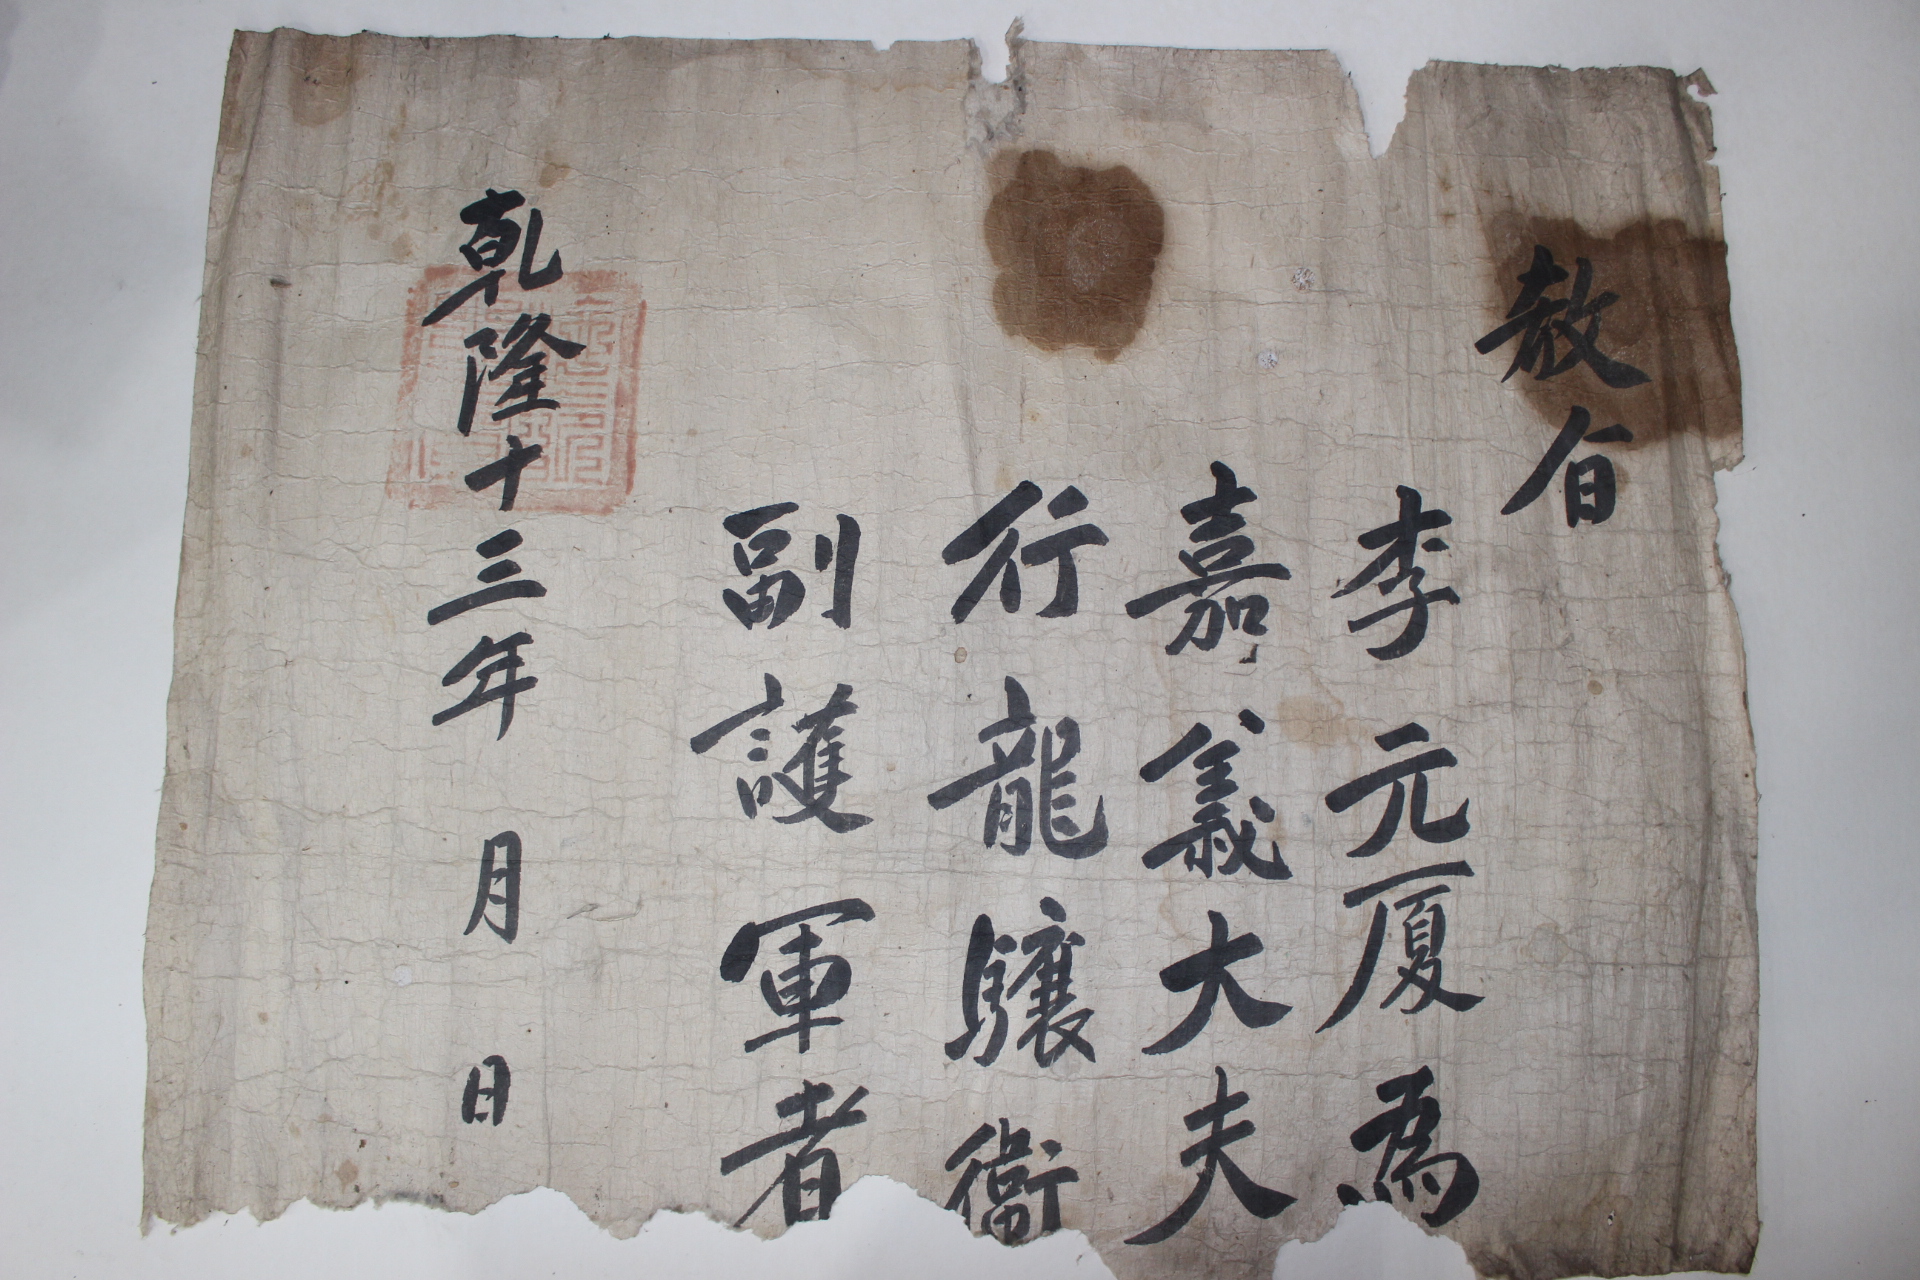 敎旨
李元厦爲
嘉義大夫
行龍驤衛
副護軍者
乾隆十三年 月 日